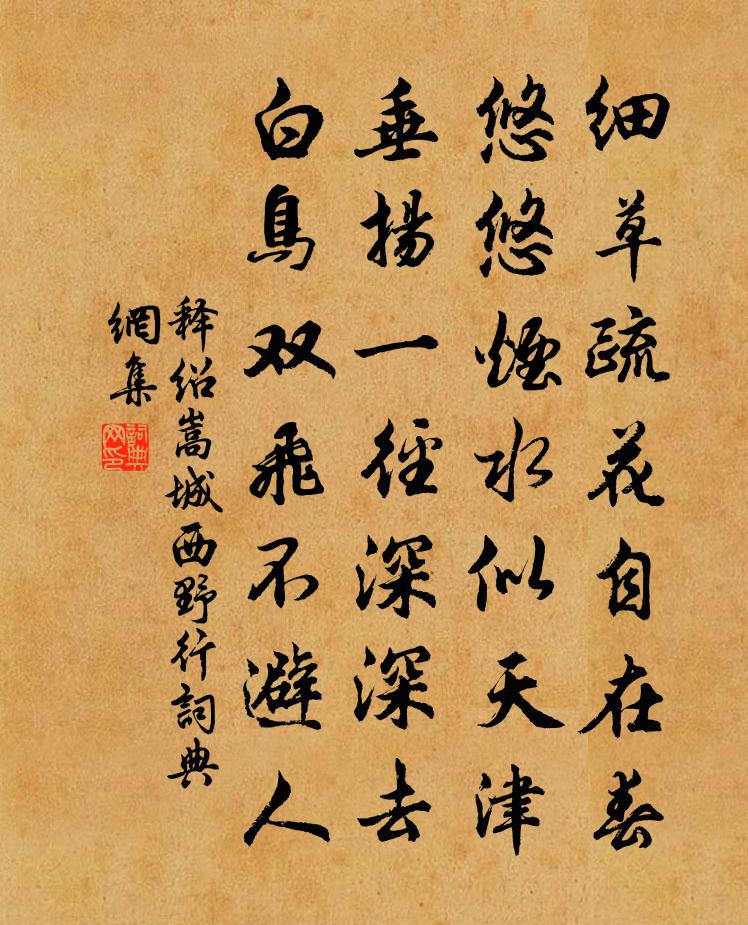 细草疏花自在春
悠悠煙水似天津
垂揚一徑深深去
白鳥双飛不避人
释绍嵩城西野行詞典
網集
詞典
网印